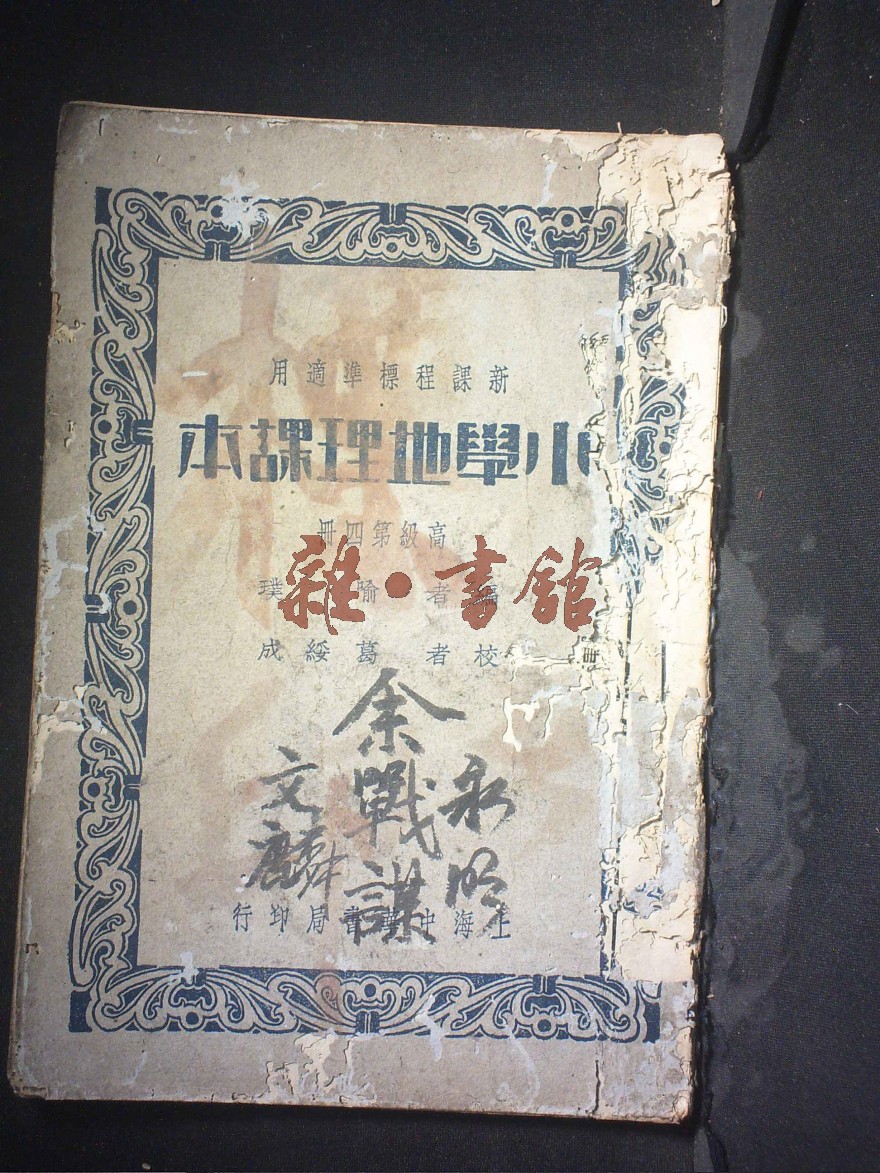 新課程標準適用
小學地理課本
高級第四冊
編者 喻 璞
校者 葛綏成
雜·書舘
永明
余戰謀
文麟
上海中華書局印行